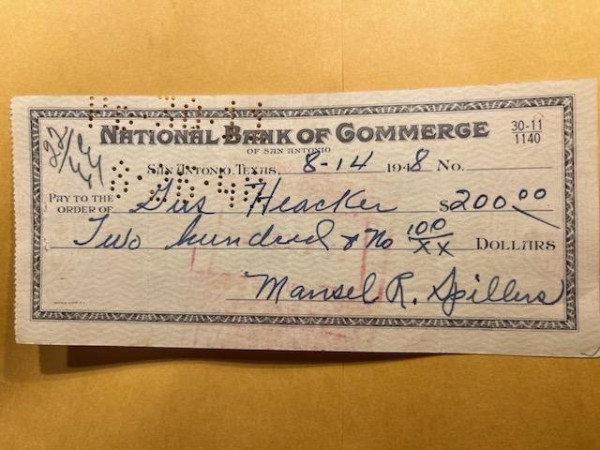 NATIONAL BANK OF COMMERCE
OF SAN ANTONIO
30-11
1140
SAN ANTONIO, TEXAS, 8-14 1948 No.
PAY TO THE
ORDER OF Gus Heacker $200.00
Two hundred & no 100/XX DOLLARS
Mansel R. Spillers